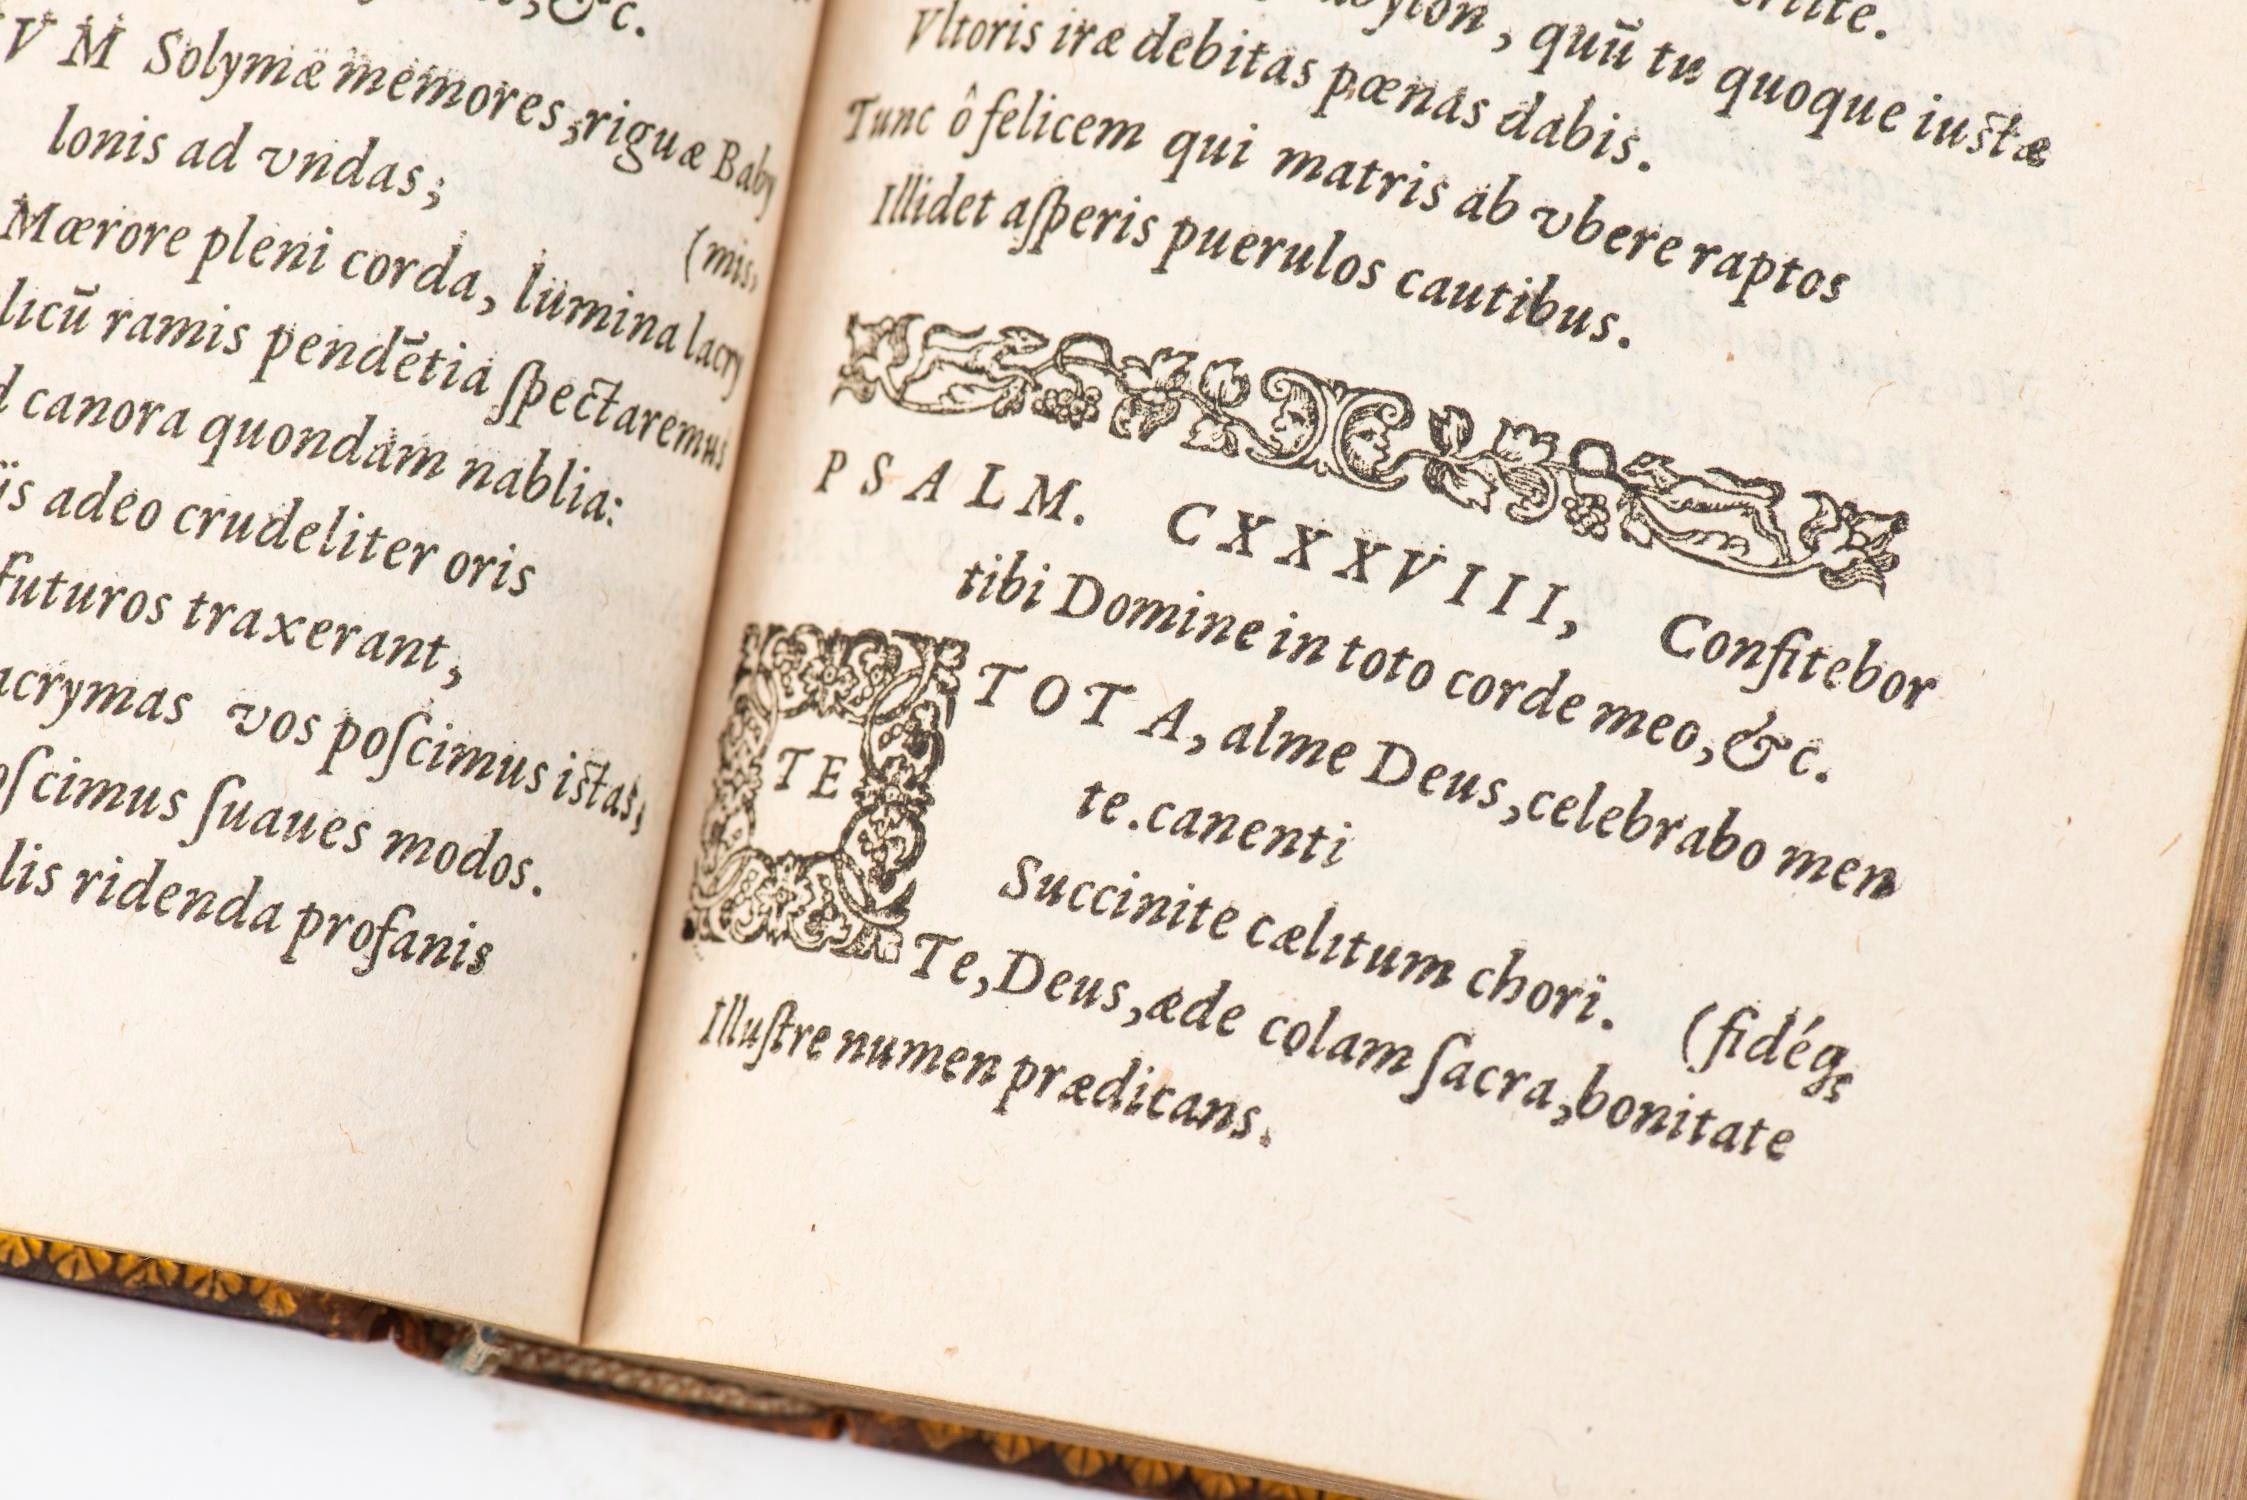 &c.
VM Solymæ memores, riguæ Baby
lonis ad vndas;
(mis,
Mœrore pleni corda, lumina lacry
licū ramis pendētia ſpectaremus
canora quondam nablia:
adeo crudeliter oris
futuros traxerant,
acrymas vos poſcimus istas,
oſcimus ſuaues modos.
lis ridenda profanis
, quū tu quoque iustæ
Vltoris iræ debitas pœnas dabis.
Tunc ô felicem qui matris ab vbere raptos
Illidet aſperis puerulos cautibus.
PSALM. CXXXVIII, Confitebor
tibi Domine in toto corde meo, &c.
TE TOTA, alme Deus, celebrabo men
te. canenti
Succinite cælitum chori.
(fidéqȝ
Te, Deus, æde colam ſacra, bonitate
Illuſtre numen prædicans.